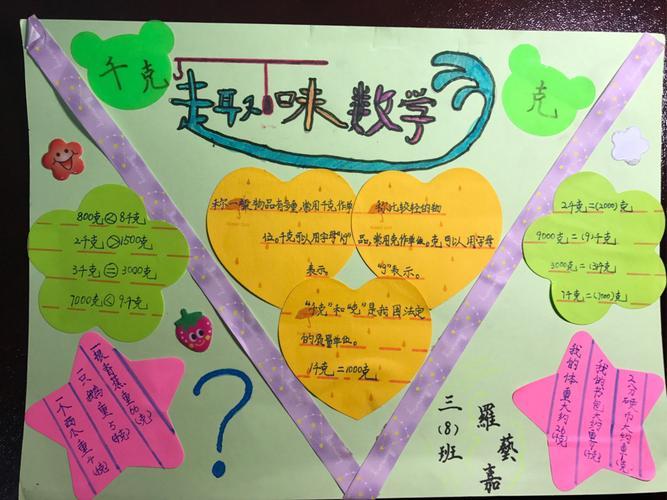 千克
趣味数学
克
800克<8千克
2千克>1500克
3千克=3000克
7000克<9千克
称一般物品有多重,常用千克作单
位。千克可以用字母"kg"
表示。
称比较轻的物
品,常用克作单位。克可以用字母
"g"表示。
"千克"和"吨"是我国法定
的质量单位。
1千克=1000克
2千克=(2000)克
9000克=(9)千克
3000克=(3)千克
7千克=(7000)克
一根香蕉重66(克)
一只鹅重5(千克)
一个西瓜重4(千克)
?
三(8)班
羅藝嘉
2分硬币大约重1克
我的书包大约重
我的体重大约26千克